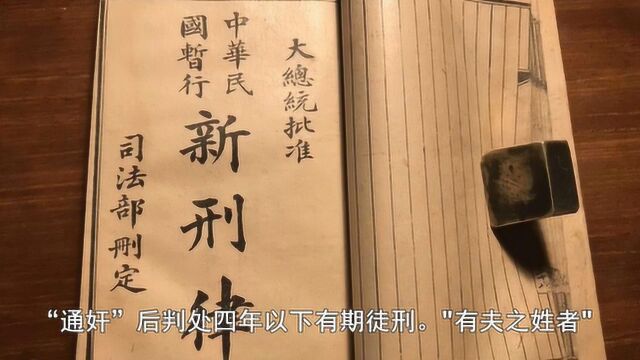 大總統批准
中華民
國暫行
新刑律
司法部刪定
“通奸”后判处四年以下有期徒刑。"有夫之姓者"